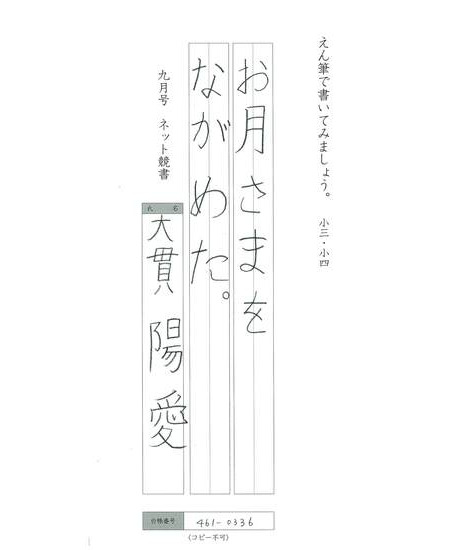 えん筆で書いてみましょう。 小三・小四
お月さまを
ながめた。
九月号 ネット競書
氏名
大貫 陽愛
台帳番号
461-0336
(コピー不可)